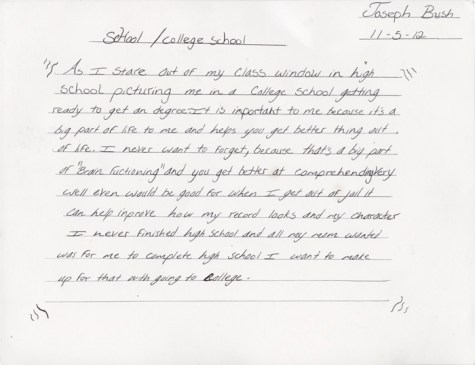 Joseph Bush
School / college school
11-5-12
As I stare out of my class window in high
school picturing me in a College school getting
ready to get an degree. It is important to me because it's a
big part of life to me and helps you get better thing out
of life. I never want to forget, because that's a big part
of "Brain fuctioning" and you get better at comprehending Very
well even would be good for when I get out of jail it
can help inprove how my record looks and my character
I never finished high school and all my mom wanted
was for me to complete high school I want to make
up for that with going to College.